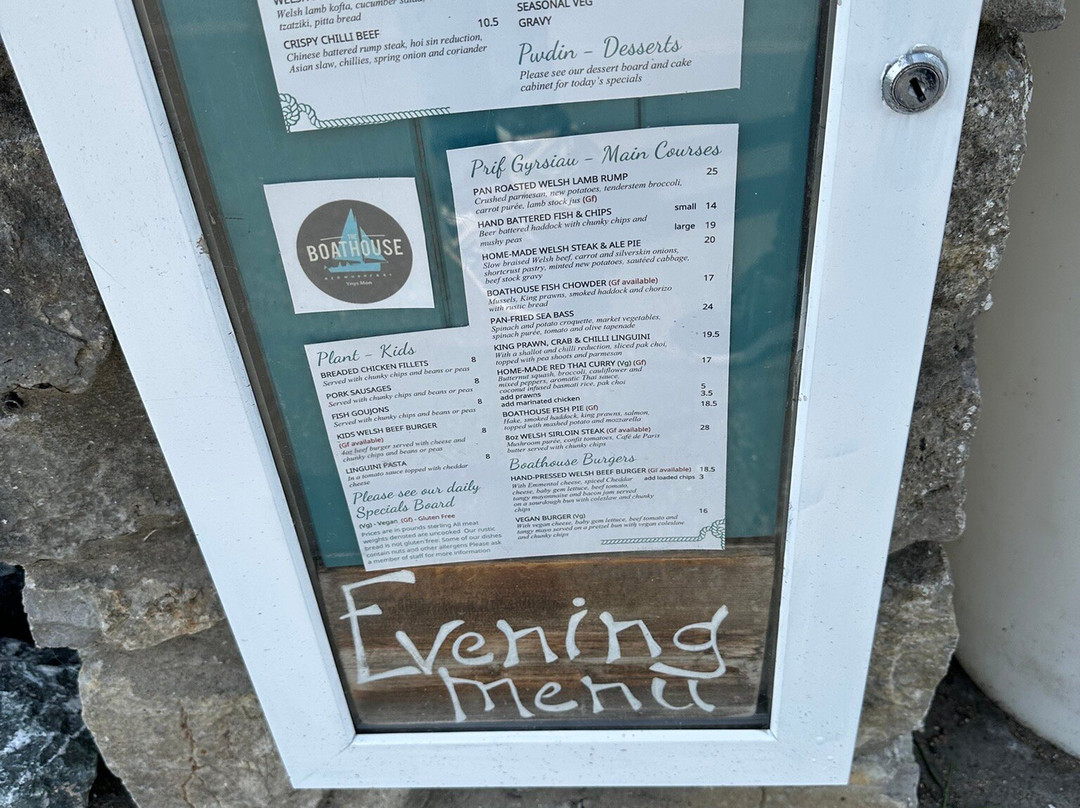 Welsh lamb kofta, cucumber salad,
tzatziki, pitta bread
CRISPY CHILLI BEEF 10.5
Chinese battered rump steak, hoi sin reduction,
Asian slaw, chillies, spring onion and coriander
SEASONAL VEG
GRAVY
Pwdin - Desserts
Please see our dessert board and cake
cabinet for today's specials
THE
BOATHOUSE
Ynys Môn
Prif Gyrsiau - Main Courses
PAN ROASTED WELSH LAMB RUMP 25
Crushed parmesan, new potatoes, tenderstem broccoli,
carrot purée, lamb stock jus (Gf)
HAND BATTERED FISH & CHIPS small 14
Beer battered haddock with chunky chips and large 19
mushy peas
HOME-MADE WELSH STEAK & ALE PIE 20
Slow braised Welsh beef, carrot and silverskin onions,
shortcrust pastry, minted new potatoes, sautéed cabbage,
beef stock gravy
BOATHOUSE FISH CHOWDER (Gf available) 17
Mussels, King prawns, smoked haddock and chorizo
with rustic bread
PAN-FRIED SEA BASS 24
Spinach and potato croquette, market vegetables,
spinach purée, tomato and olive tapenade
KING PRAWN, CRAB & CHILLI LINGUINI 19.5
With a shallot and chilli reduction, sliced pak choi,
topped with pea shoots and parmesan
HOME-MADE RED THAI CURRY (Vg) (Gf) 17
Butternut squash, broccoli, cauliflower and
mixed peppers, aromatic Thai sauce,
coconut infused basmati rice, pak choi
add prawns 5
add marinated chicken 3.5
BOATHOUSE FISH PIE (Gf) 18.5
Hake, smoked haddock, king prawns, salmon,
topped with mashed potato and mozzarella
8oz WELSH SIRLOIN STEAK (Gf available) 28
Mushroom purée, confit tomatoes, Café de Paris
butter served with chunky chips
Boathouse Burgers
HAND-PRESSED WELSH BEEF BURGER (Gf available) 18.5
With Emmental cheese, spiced Cheddar add loaded chips 3
cheese, baby gem lettuce, beef tomato,
tangy mayonnaise and bacon jam served
on a sourdough bun with coleslaw and chunky
chips
VEGAN BURGER (Vg) 16
With vegan cheese, baby gem lettuce, beef tomato and
tangy mayo served on a pretzel bun with vegan coleslaw
and chunky chips
Plant - Kids
BREADED CHICKEN FILLETS 8
Served with chunky chips and beans or peas
PORK SAUSAGES 8
Served with chunky chips and beans or peas
FISH GOUJONS 8
Served with chunky chips and beans or peas
KIDS WELSH BEEF BURGER 8
(Gf available)
4oz beef burger served with cheese and
chunky chips and beans or peas
LINGUINI PASTA 8
In a tomato sauce topped with cheddar
cheese
Please see our daily
Specials Board
(Vg) - Vegan, (Gf) - Gluten Free
Prices are in pounds sterling All meat
weights denoted are uncooked. Our rustic
bread is not gluten free. Some of our dishes
contain nuts and other allergens Please ask
a member of staff for more information
Evening
menu